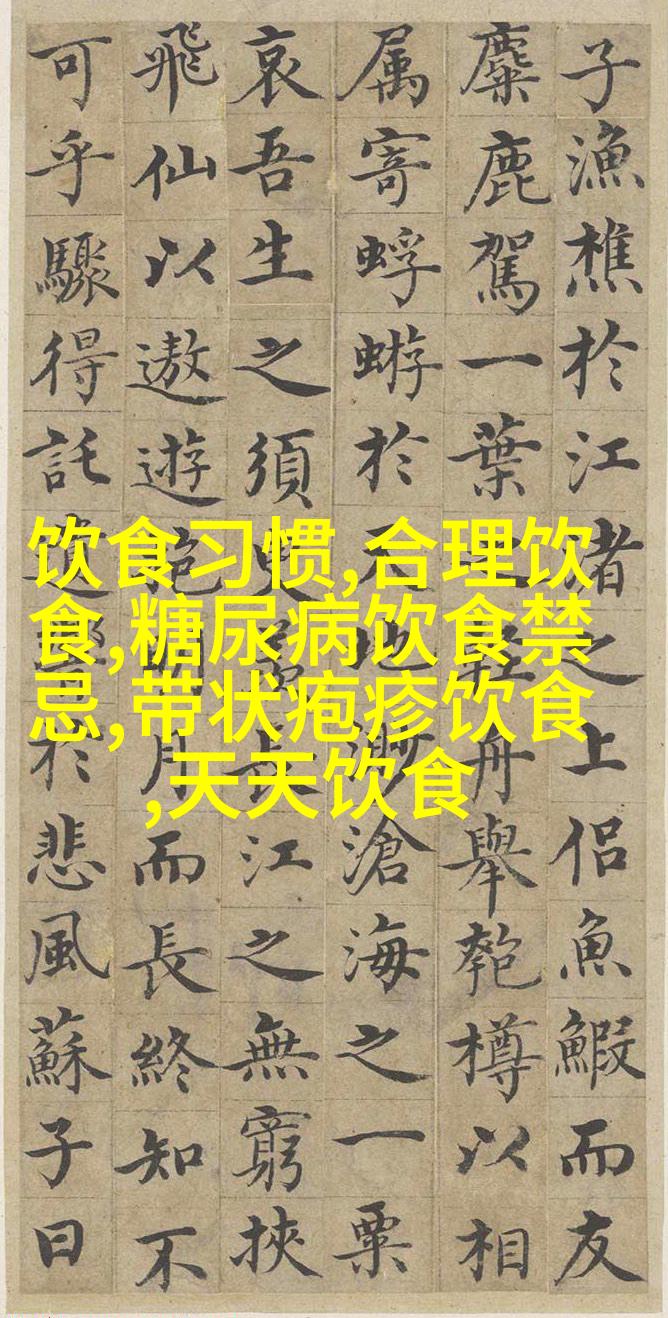 子漁樵於江渚之上侶魚鰕而友
麋鹿駕一葉輕舟舉匏樽以相
属寄蜉蝣於天地渺滄海之一粟
哀吾生之須長江之無窮挾
飛仙以遨遊抱月而長終知不
可乎驟得託遺於悲風蘇子曰
饮食习惯,合理饮
食,糖尿病饮食禁
忌,带状疱疹饮食
,天天饮食